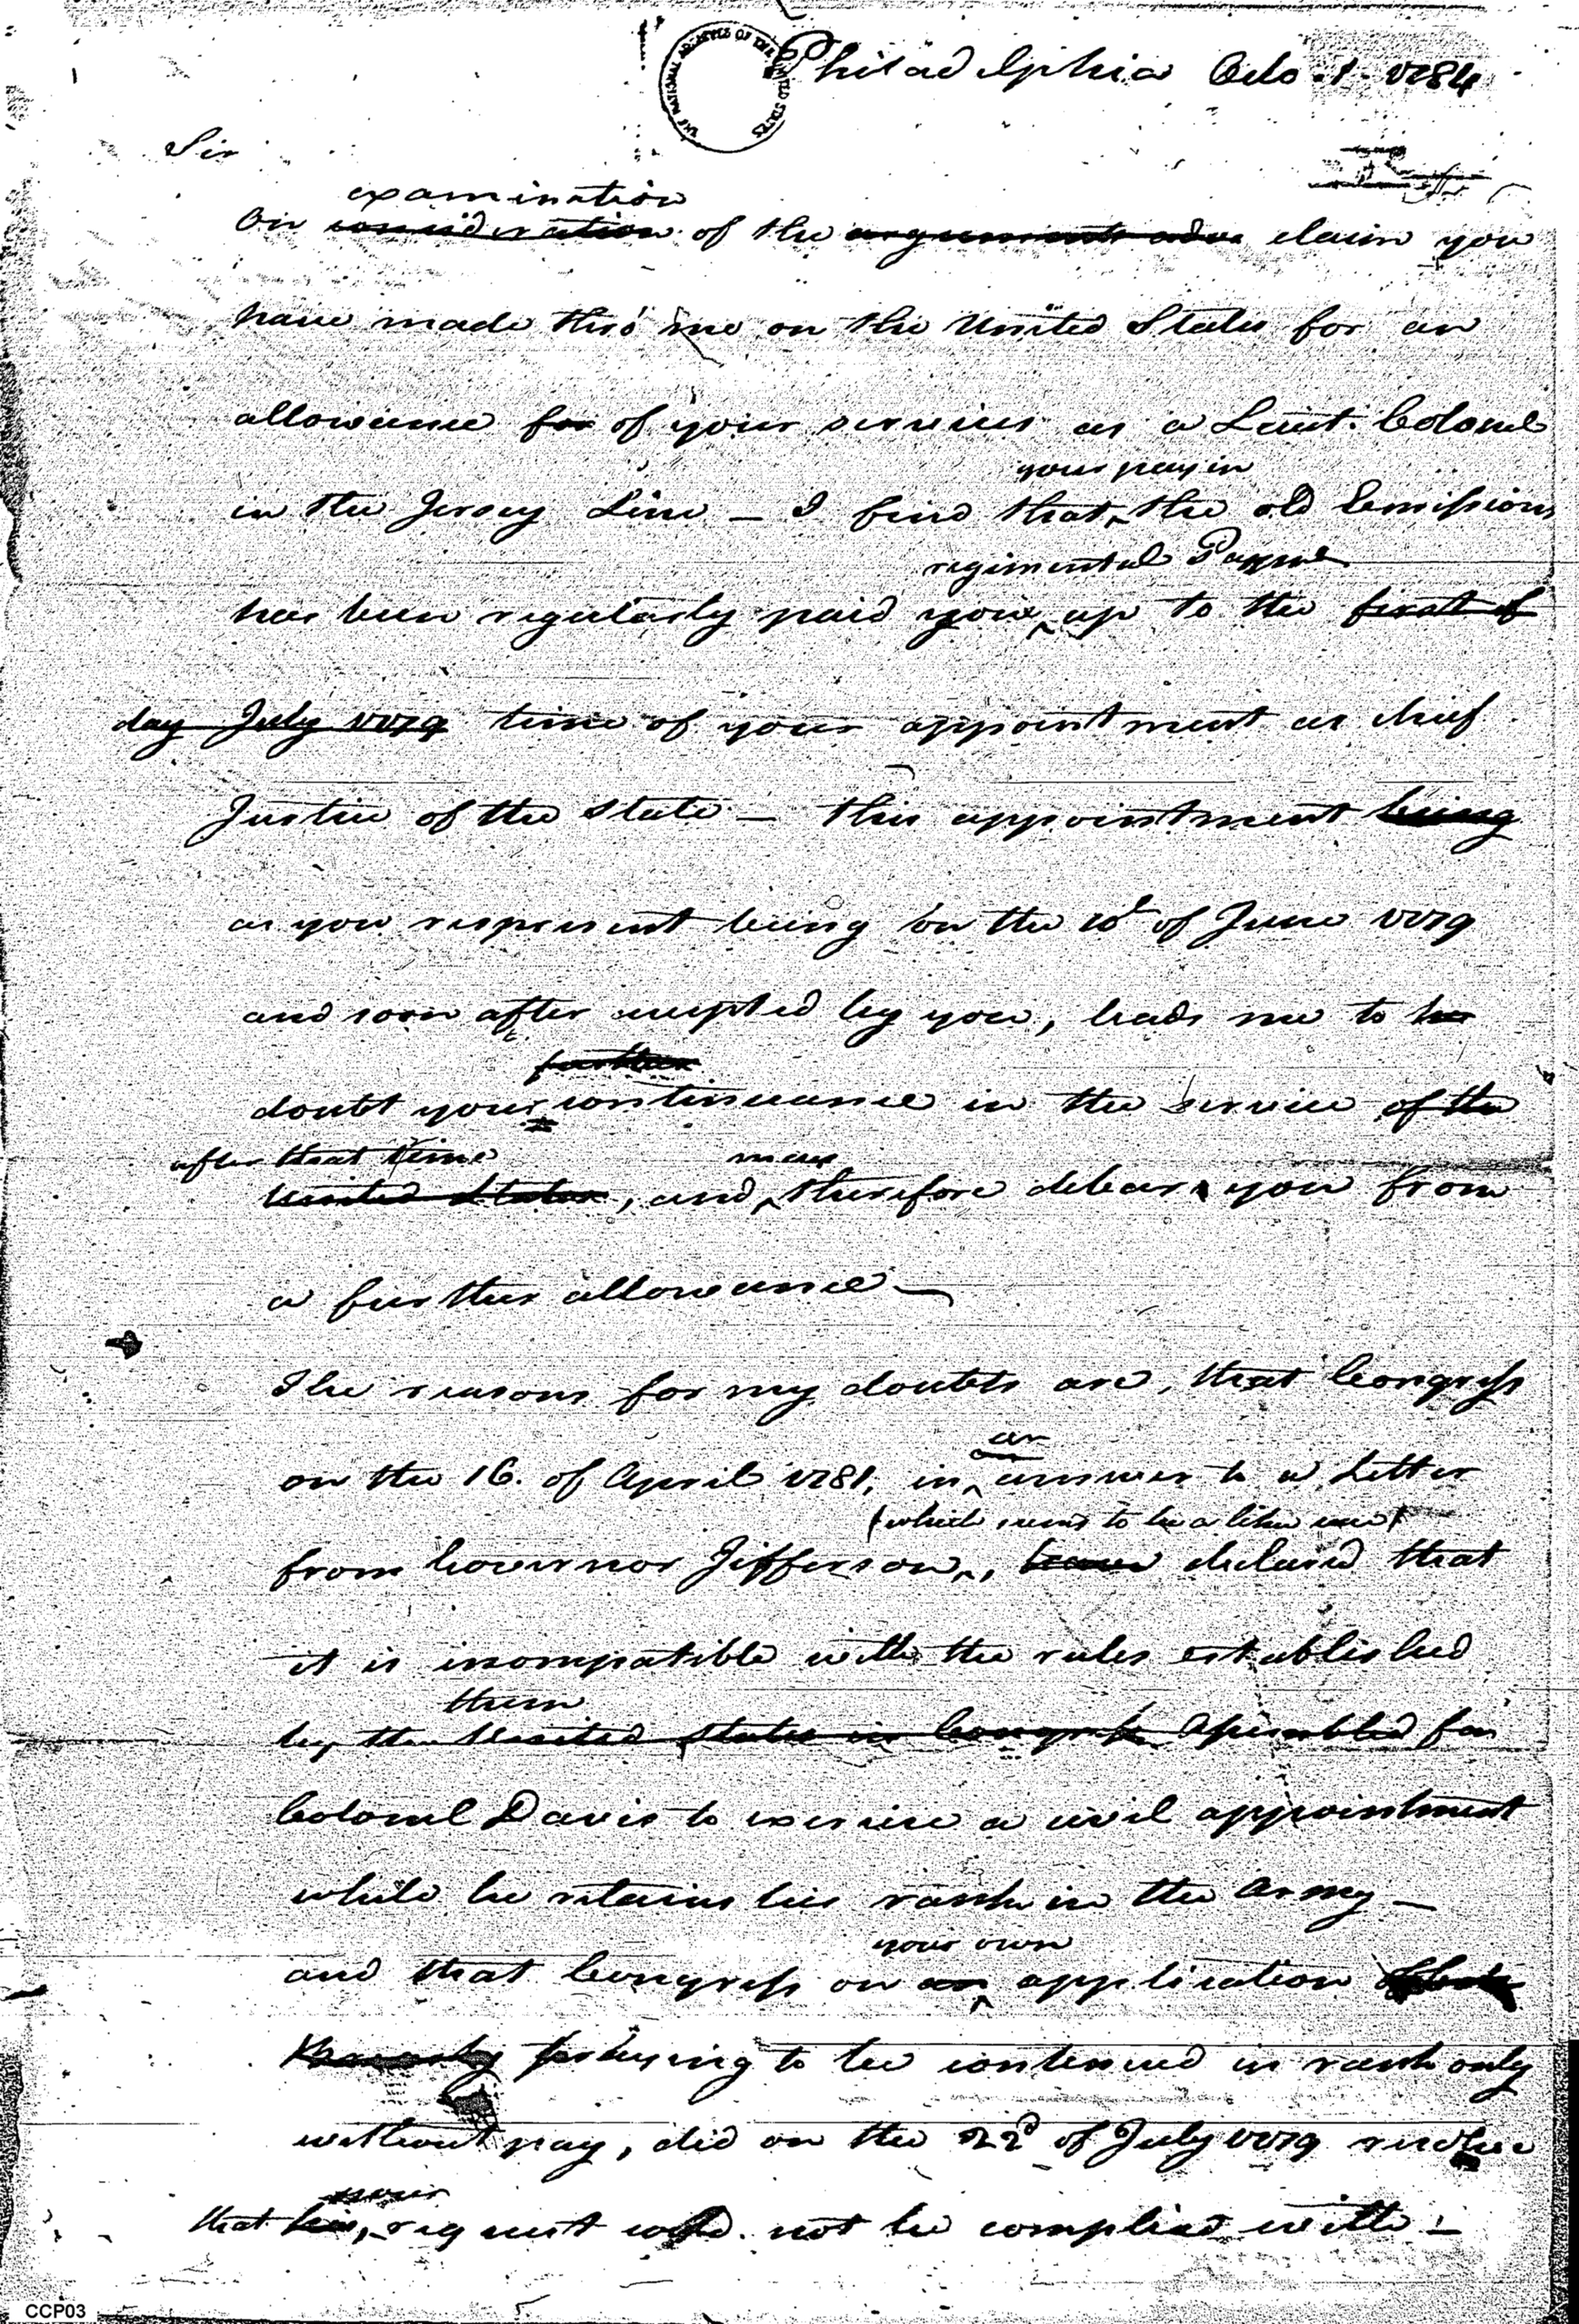 THE NATIONAL ARCHIVES OF THE UNITED STATES
Philadelphia Octo. 1. 1784
Sir
examination
On consideration of the arguments adva claim you
have made thro' me on the United States for an
allowance for of your services as a Lieut: Colonel
your pay in
in the Jersey Line — I find that the old Emissions
regimental Paymr
has been regularly paid your up to the first of
day July 1779 time of your appointment as chief
Justice of the State — this appointment being
as you represent being on the 10th of June 1779
and soon after accepted by you, leads me to
further
doubt your continuance in the service of the
after that time may
United States, and therefore debar you from
a further allowance —
The reasons for my doubts are, that Congress
an
on the 16. of April 1781, in answer to a Letter
(which seems to be a like case)
from Governor Jefferson, have declared that
it is incompatible with the rules established
them
by the United States in Congress Assembled for
Colonel Davis to exercise a civil appointment
while he retains his rank in the Army —
your own
and that Congress on an application
to be continued in rank only
without pay, did on the 22d of July 1779 resolve
your
that his request could not be complied with —
CCP03